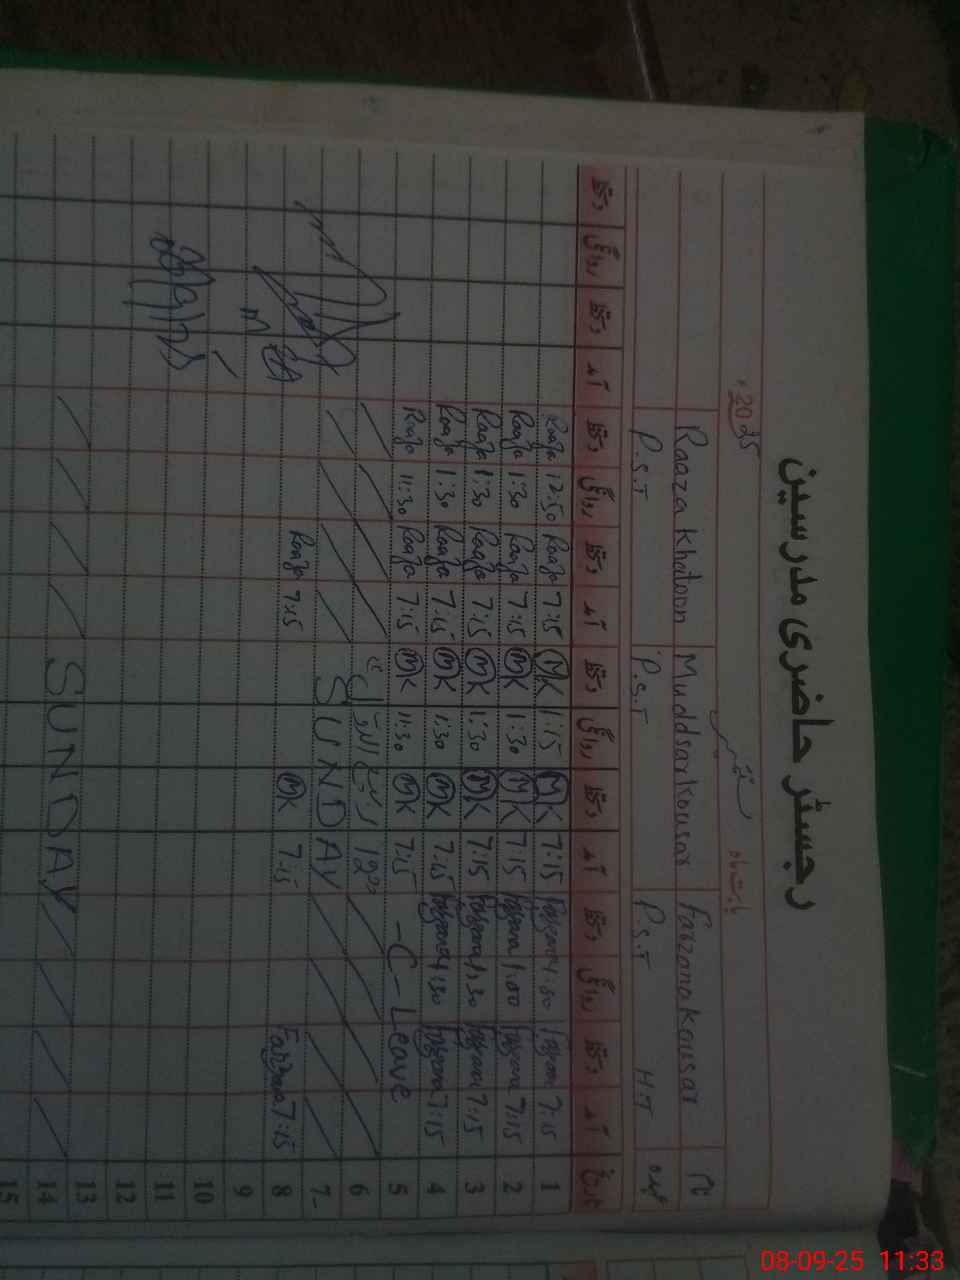 رجسٹر حاضری مدرسین
بابت ماہ ستمبر 2025ء
نام Farzana Kousar Muddsar Kousar Raaza Khatoon
عہدہ P.S.T H.T P.S.T P.S.T
تاریخ آمد دستخط روانگی دستخط آمد دستخط روانگی دستخط آمد دستخط روانگی دستخط آمد دستخط روانگی دستخط
1 7:15 1:30 7:15 MK 1:15 MK 7:15 Raaza 12:50 Raaza
2 7:15 Farzana 1:00 Farzana 7:15 MK 1:30 MK 7:15 Raaza 1:30 Raaza
3 7:15 Farzana 1:30 Farzana 7:15 MK 1:30 MK 7:15 Raaza 1:30 Raaza
4 7:15 Farzana 1:30 Farzana 7:15 MK 1:30 MK 7:15 Raaza 1:30 Raaza
5 - C - Leave 7:15 MK 11:30 MK 7:15 Raaza 11:30 Raaza
6 12 ربیع الاول
7 SUNDAY
8 7:15 Farzana 7:15 MK 7:15 Raaza
9
10
11
12
13
14 SUNDAY
15
08-09-25 11:33